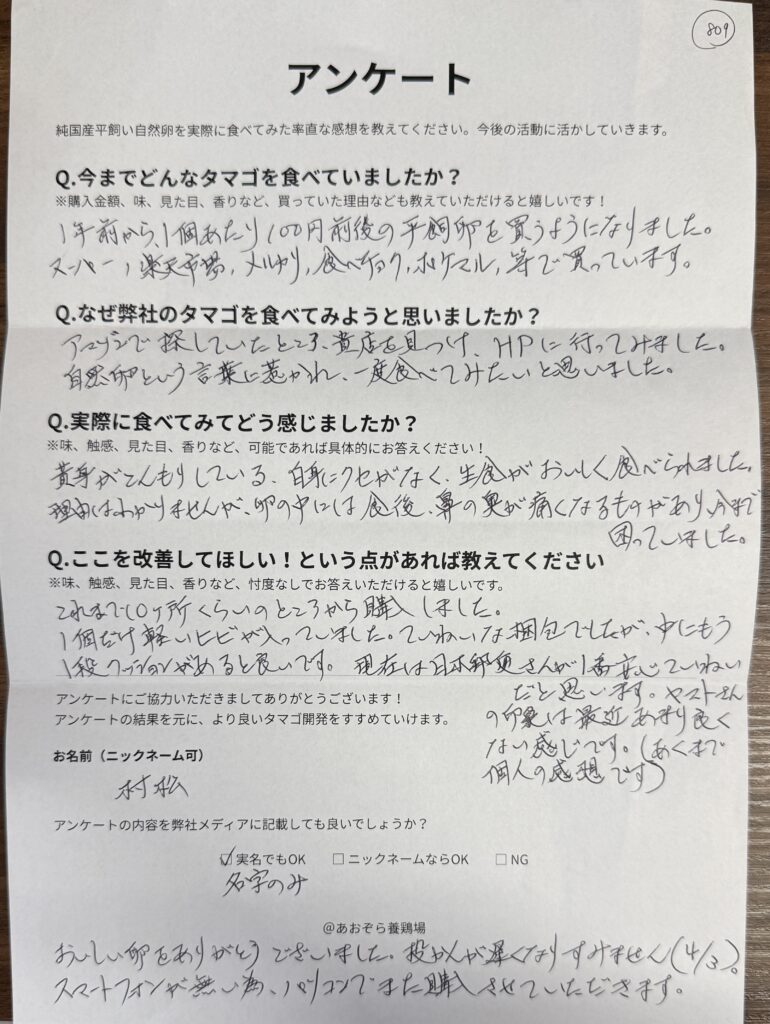 809
アンケート
純国産平飼い自然卵を実際に食べてみた率直な感想を教えてください。今後の活動に活かしていきます。
Q.今までどんなタマゴを食べていましたか？
※購入金額、味、見た目、香りなど、買っていた理由なども教えていただけると嬉しいです！
1年前から、1個あたり100円前後の平飼卵を買うようになりました。
スーパー、楽天市場、メルカリ、食べチョク、ポケマル、等で買っています。
Q.なぜ弊社のタマゴを食べてみようと思いましたか？
アマゾンで探していたところ、貴店を見つけ、HPに行ってみました。
自然卵という言葉に惹かれ、一度食べてみたいと思いました。
Q.実際に食べてみてどう感じましたか？
※味、触感、見た目、香りなど、可能であれば具体的にお答えください！
黄身がこんもりしている、白身にクセがなく、生食がおいしく食べられました。
理由はわかりませんが、卵の中には食後、鼻の奥が痛くなるものがあり、今まで
困っていました。
Q.ここを改善してほしい！という点があれば教えてください
※味、触感、見た目、香りなど、忖度なしでお答えいただけると嬉しいです。
これまで10ヶ所くらいのところから購入しました。
1個だけ軽いヒビが入っていました。ていねいな梱包でしたが、中にもう
1段クッションがあると良いです。現在は日本郵便さんが1番安心ていねい
だと思います。ヤマトさん
の印象は最近あまり良く
ない感じです。(あくまで
個人の感想です)
アンケートにご協力いただきましてありがとうございます！
アンケートの結果を元に、より良いタマゴ開発をすすめていけます。
お名前（ニックネーム可）
村松
アンケートの内容を弊社メディアに記載しても良いでしょうか？
☑実名でもOK □ニックネームならOK □NG
名字のみ
@あおぞら養鶏場
おいしい卵をありがとうございました。投かんが遅くなりすみません(4/3)。
スマートフォンが無い為、パソコンでまた購入させていただきます。